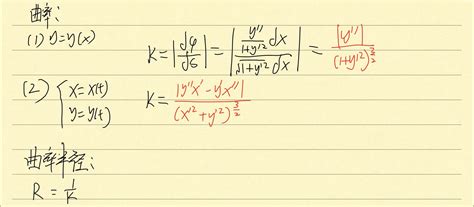 曲率：
(1) y=y(x) K=|dφ/ds|=|y''/(1+y'²)dx/√(1+y'²)dx|=|y''|/(1+y'²)^(3/2)
(2) {x=x(t) y=y(t) K=|y''x'-y'x''|/(x'²+y'²)^(3/2)
曲率半径：
R=1/K